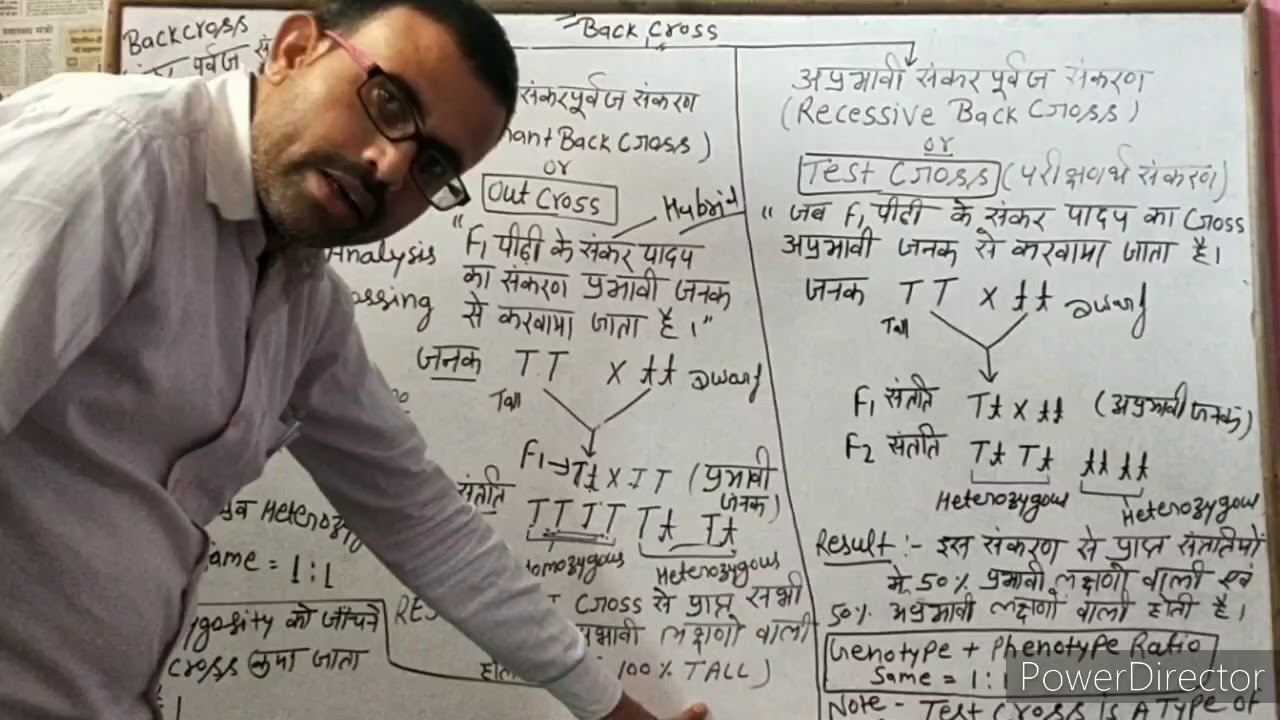 Back Cross
Backcross
पूर्वज
संकरपूर्वज संकरण
Back Cross)
or
Out Cross
Hubrid
Analysis
ossing
"F₁ पीढ़ी के संकर पादप
का संकरण प्रभावी जनक
से करवाया जाता है।"
जनक TT X tt Dwarf
Tall
F₁→Tt X TT (प्रभावी
जनक)
संतति TT TT Tt Tt
omozygous Heterozygous
Cross से प्राप्त सभी
लक्षणो वाली
100% TALL)
Same = 1:1
ygosity को जाँचने
cross जाता
1
अप्रभावी संकर पूर्वज संकरण
(Recessive Back Cross)
or
Test Cross (परीक्षणार्थ संकरण)
"जब F₁ पीढी के संकर पादप का Cross
अप्रभावी जनक से करवाया जाता है।
जनक TT X tt Dwarf
Tall
F₁ संतति Tt X tt (अप्रभावी जनक)
F₂ संतति Tt Tt tt tt
Heterozygous Heterozygous
Result :- इस संकरण से प्राप्त संततियों
मे 50% प्रभावी लक्षणो वाली एवं
50% अप्रभावी लक्षणों वाली होती है।
Genotype + Phenotype Ratio
Same = 1:1
Note - Test Cross is A Type of
PowerDirector